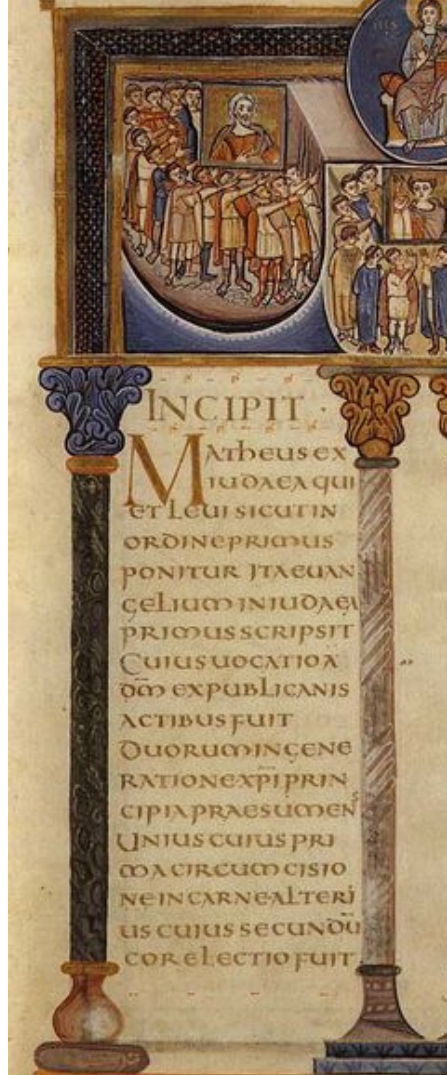 INCIPIT ·
MATHEUS EX
IUDAEA QUI
ET LEUI SICUT IN
ORDINE PRIMUS
PONITUR ITA EUAN
GELIUM IN IUDAEA
PRIMUS SCRIPSIT
CUIUS UOCATIO A
DM̄ EX PUBLICANIS
ACTIBUS FUIT
DUORUM IN GENE
RATIONE XP̄I PRIN
CIPIA PRAESUMENS
UNIUS CUIUS PRI
MA CIRCUMCISIO
NE IN CARNE· ALTERI
US CUIUS SECUNDŪ
COR ELECTIO FUIT